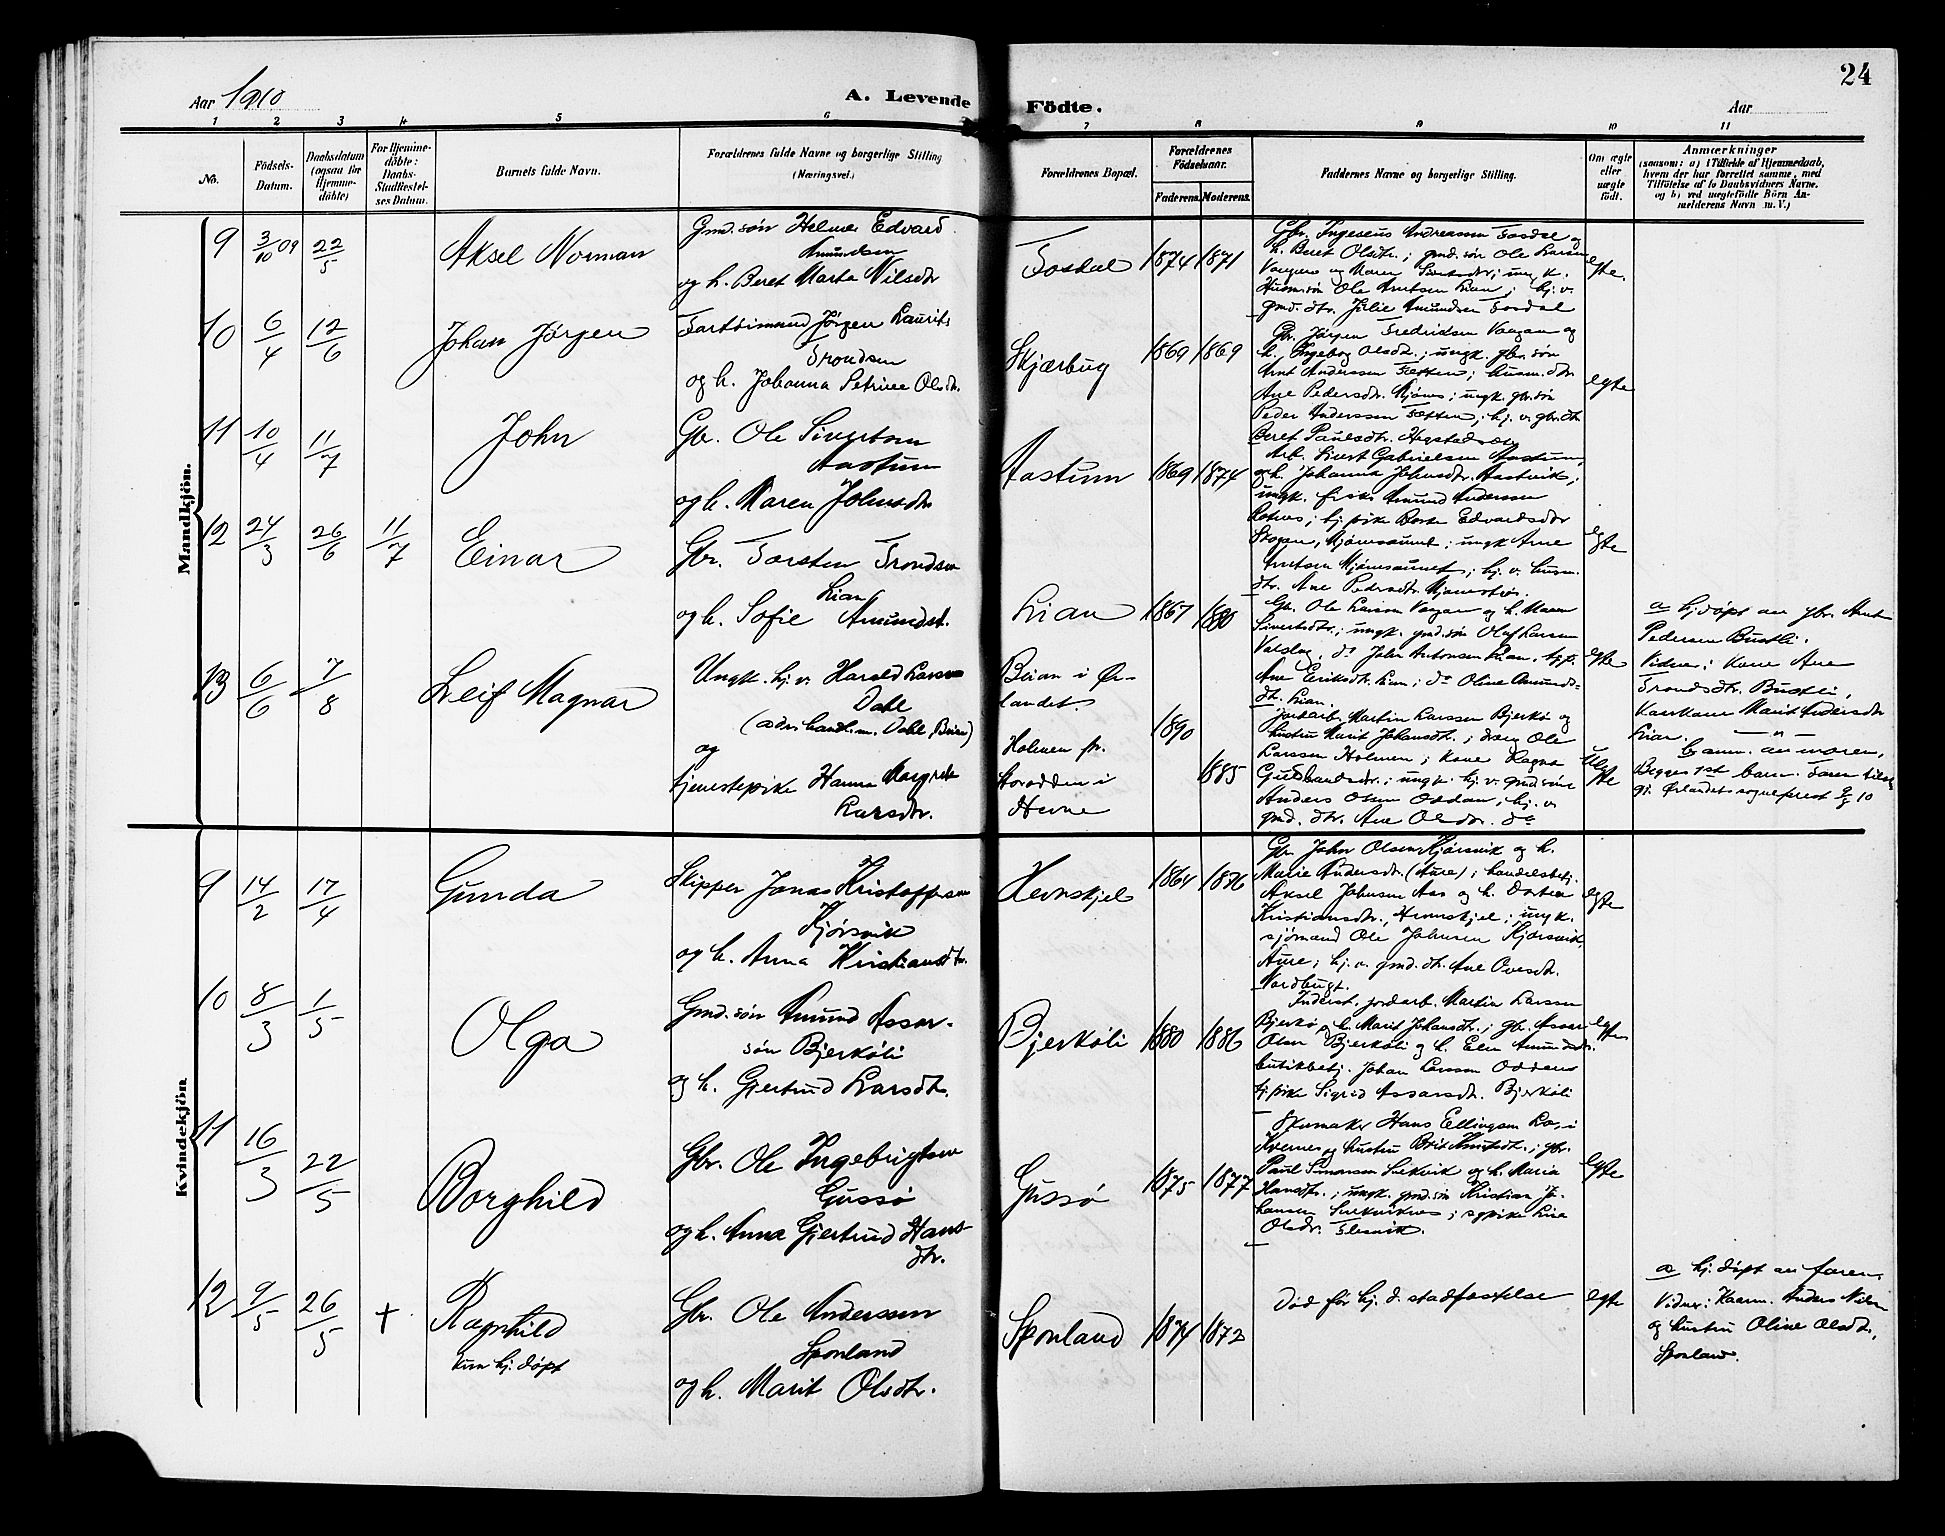 24
Aar 1910
A. Levende
Födte.
Aar
1 2 3 4 5 6 7 8 9 10 11
No.
Födsels-
Datum.
Daabsdatum
(ogsaa för
Hjemme-
döbte)
For Hjemme-
döbte:
Daabs-
Stadfæstel-
ses Datum.
Barnets fulde Navn.
Forældrenes fulde Navne og borgerlige Stilling
(Næringsvei.)
Forældrenes Bopæl.
Forældrenes
Födselsaar.
Faderens.
Moderens.
Faddernes Navne og borgerlige Stilling.
Om ægte
eller
uægte
födt.
Anmærkninger
(saasom: a) i Tilfælde af Hjemmedaab,
hvem der har forrettet samme, med
Tilföielse af to Daabsvidners Navne.
og b) ved uægtefödte Börn An-
melderens Navn m. V.)
Mandkjön.
9
3/10 09
22/5
Aksel Norman
Gmd. søn Helmer Edvard
Amundsen
og h. Beret Marta Nilsdtr
Fosdal
1874
1871
Gbr. Ingeseus Andreassen Fosdal og
h. Beret Olsdtr.; gmd. søn Ole Larsen
Vaagan og Maren Sivertsdtr; ungk.
Husm. søn Ole Arntsen Lian; hj. v.
gmd. dtr. Julie Amundsen Fosdal
egte.
10
6/4
12/6
Johan Jørgen
Fartøimand Jørgen Laurits
Trondsen
og h. Johanna Petrine Olsdtr.
Skjærbug
1869
1869
Gbr. Jørgen Fredriksen Vaagan og
h. Ingebor Olsdtr.; ungk. gbr. søn
Arnt Anderssen Fætten; husm. dtr.
Ane Pedersdtr. Mjønes; ungk. gbr. søn
Peder Anderssen Fætten; hj. v. gbr. dtr.
Beret Paulsdtr. Hegstad
egte
11
10/4
11/7
John
Gbr. Ole Sivertsen
Aastum
og h. Maren Johnsdtr
Aastum
1869
1874
Arb. Sivert Gabrielsen Aastum,
og h. Johanna Johnsdtr. Aastvik;
ungk. Amund Anderssen
hj. pike Edvardsdtr
Skogan, Mjønesaunet; ungk Arne
Arntsen Mjønesaunet; hj. v. husm.
dtr. Ane Pedersdtr. Mjønes
egte
12
24/3
26/6
11/7
Einar
Gbr. Torsten Trondsen
Lian
og h. Sofie Amundsdt.
Lian
1867
1880
Gbr. Ole Larsen Vaagan og h. Maren
Sivertsdtr.; ungk. gmd. søn Olaf Larsen
Valslag, do John Antonsen Lian, hj. p.
Ane Eriksdtr. Lian; do Oline Amunds-
dt. Lian.
egte
a hj. døpt av gbr. Arnt
Pedersen Bustli.
Vidner: kone Ane
Trondsdtr. Bustli,
Kaarkone Marit Andersdtr
Lian.
13
6/6
7/8
Leif Magnar
Ungk. hj. v. Harald Larsen
Dahl
(adr. handl. m. Dahl, Beian)
og
tjenestepike Hanna Margrete
Larsdtr.
Beian i Ør-
landet
Holmen pr.
Storodden i
Hevne
1890
1885
Jordarb. Martin Larssen Bjerkø og
hustru Marit Johansdtr.; dræng Ole
Larssen Holmen; kone Ragna
Gulbrandsdtr; ungk. hj. v. gmd. søn
Anders Olsen Oddan; hj. v.
gmd. dtr. Ane Olsdtr. do
Uegte
b anm. av moren,
Begges 1st barn. Faren tilst.
gj. Ørlandets sogneprest 9/9 10
Kvindekjön
9
14/2
17/4
Gunda
Skipper Jonas Kristoffersen
Kjørsvik
og h. Anna Kristiansdtr.
Hevnskjel
1864
1876
Gbr John Olsen Kjørsvik og h.
Marie Andersdtr (Aure); handelsbetj.
Aksel Johnsen Aas og h. Dortea
Kristiansdtr, Hevnskjel; ungk.
sjømand Ole Johnsen Kjørsvik,
Aure; hj. v. gmd. dtr. Ane Ovesdtr.
Nordbugt.
egte
10
8/3
1/5
Olga
Gmd. søn Amund Assar-
søn Bjerkøli
og h. Gjertrud Larsdtr.
Bjerkøli
1880
1886
Inderst. jordarb. Martin Larssen
Bjerkø og h. Marit Johansdtr.; gbr. Assar
Olsen Bjerkøli og h. Elen Amundsdtr.
butikbetj. Johan Larssen Odden
tj. pike Sigrid Assarsdtr. Bjerkøli
egte
11
16/3
22/5
Borghild
Gbr. Ole Ingebrigtsen
Gussø
og h. Anna Gjertrud Hans-
dtr.
Gussø
1875
1877
Skomaker Hans Ellingsen Lo, i
Kvernes og hustru Brit Knutsdtr.; gbr.
Paul Simonsen Selvik og h. Maria
Hansdtr.; ungk. gmd. søn Kristian Jo-
hansen; Lisa
Olsdtr. Flesvik.
egte
12
9/5
26/5
+
Ragnhild
kun hj. døpt
Gbr. Ole Anderssen
Sponland
og h. Marit Olsdtr.
Sponland
1874
1872
Død før hj. d. stadfæstelse
egte
a hj. døpt av faren.
Vidner: Kaarm. Anders Nilsen
og hustru Oline Olsdtr,
Sponland.